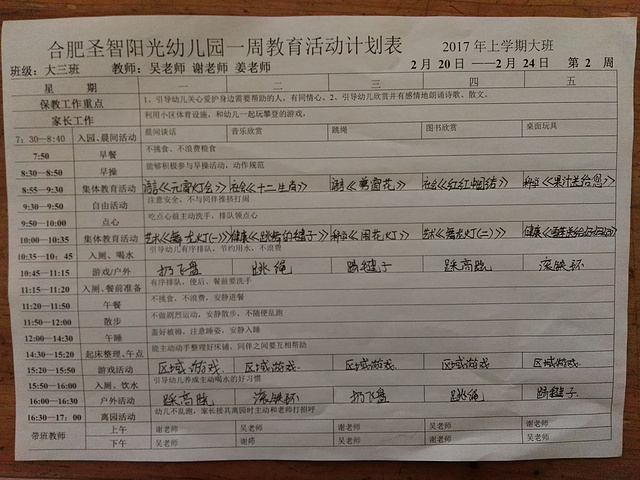 合肥圣智阳光幼儿园一周教育活动计划表 2017年上学期大班
班级：大三班 教师：吴老师 谢老师 姜老师 2月20日——2月24日 第2周
星期 一 二 三 四 五
保教工作重点 1、引导幼儿关心爱护身边需要帮助的人，有同情心。2、引导幼儿欣赏并有感情地朗诵诗歌、散文。
家长工作 利用小区体育设施，和幼儿一起玩攀登的游戏。
7：30—8:40 入园、晨间活动 晨间谈话 音乐欣赏 跳绳 图书欣赏 桌面玩具
7:50 早餐 不挑食、不浪费粮食
8:30—8:50 早操 能够积极参与早操活动，动作规范
8:55—9:30 集体教育活动 语言《元宵灯会》 社会《十二生肖》 语言《剪窗花》 社会《红红中国结》
9:30—9:50 自由活动 注意安全，不与同伴推挤打闹
9:50—10:00 点心 吃点心前主动洗手，排队领点心
10:00—10:35 集体教育活动 艺术《舞龙灯(一)》 健康《跳舞的毽子》 艺术《舞龙灯(二)》
10:35—10：45 入厕、喝水 引导幼儿有序排队，节约用水，不浪费
10:45—11:15 游戏/户外 扔飞盘 跳绳 踢毽子 踩高跷 滚铁环
11:15—11:20 入厕、餐前准备 有序排队，便后、餐前要洗手
11:20—11:50 午餐 不挑食，不浪费，安静进餐
11:50—12:00 散步 不做剧烈运动，安静散步，不随便乱跑
12:00—14:30 午睡 盖好被褥，注意睡姿，安静入睡
14:30—15:20 起床整理、午点 能主动动手整理好床铺，同伴之间要互相帮助
15:20—15:50 游戏活动 区域游戏 区域游戏 区域游戏 区域游戏 区域游戏
15:50—16:00 入厕、饮水 引导幼儿养成主动喝水的好习惯
16:00—16:30 户外活动 踩高跷 滚铁环 扔飞盘 跳绳 踢毽子
16:30—17：00 离园活动 幼儿不乱跑，家长接其离园时主动和老师打招呼
带班教师 上午 谢老师 吴老师 谢老师 吴老师 谢老师
下午 吴老师 谢师 吴老师 谢老师 吴老师